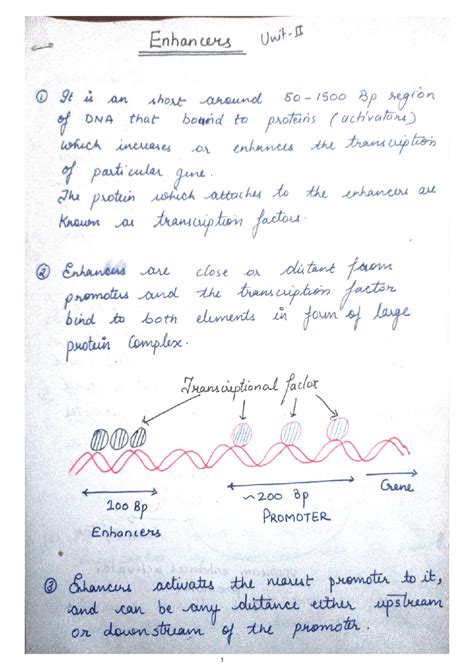 Enhancers Unit-II
① It is an short around 50-1500 Bp region
of DNA that bound to proteins (activators)
which increases or enhances the transcription
of particular gene.
The protein which attaches to the enhancers are
Known as transcription factors.
② Enhancers are close or distant from
promoters and the transcription factor
bind to both elements in form of large
protein Complex.
Transcriptional factor
100 Bp
Enhancers
~200 Bp
PROMOTER
Gene
③ Enhancers activates the nearest promoter to it,
and can be any distance either upstream
or downstream of the promoter.
1